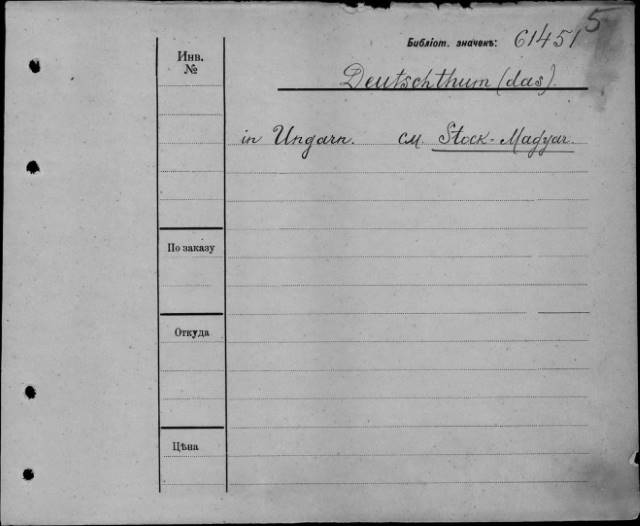 5
Библіот. значекъ: 61451
Инв.
№
Deutschthum (das).
in Ungarn. см. Stock-Magyar.
По заказу
Откуда
Цѣна